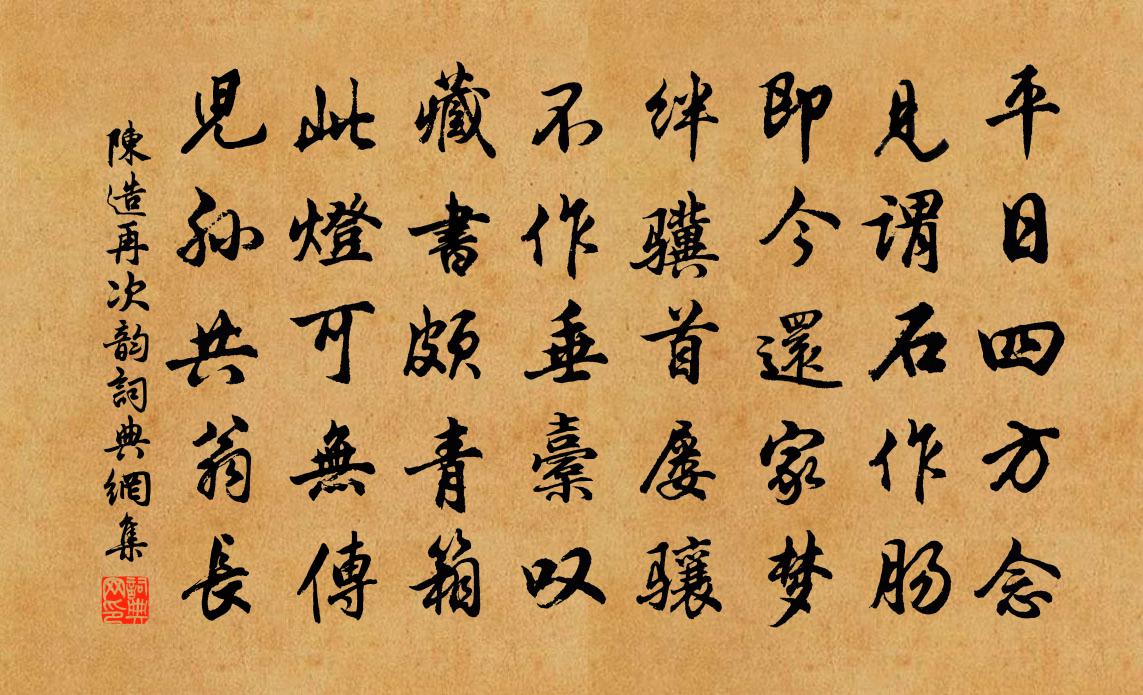 平日四方念
見謂石作肠
即今還家梦
絆骥首屡骧
不作垂橐叹
藏書頗青箱
此燈可無傳
児孫共翁長
陳造再次韵詞典網集
詞典网印